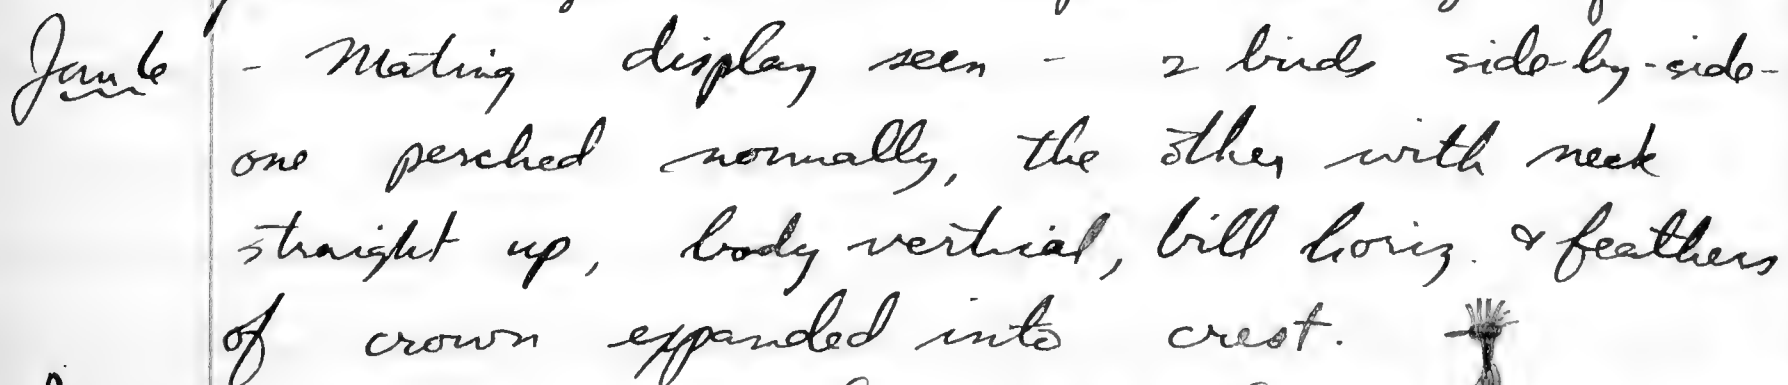 Jan 6 - Mating display seen - 2 birds side-by-side-
one perched normally, the other with neck
straight up, body vertical, bill horiz. & feathers
of crown expanded into crest.